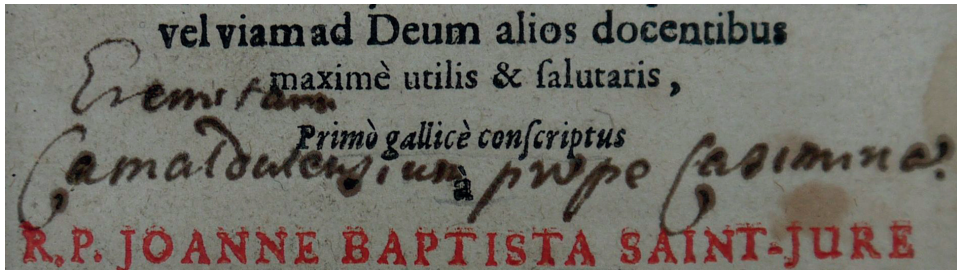 vel viam ad Deum alios docentibus
maximè utilis & ſalutaris,
Eremitarum
Primò gallicè conſcriptus
Camaldulensium prope
à
R. P. JOANNE BAPTISTA SAINT-JURE